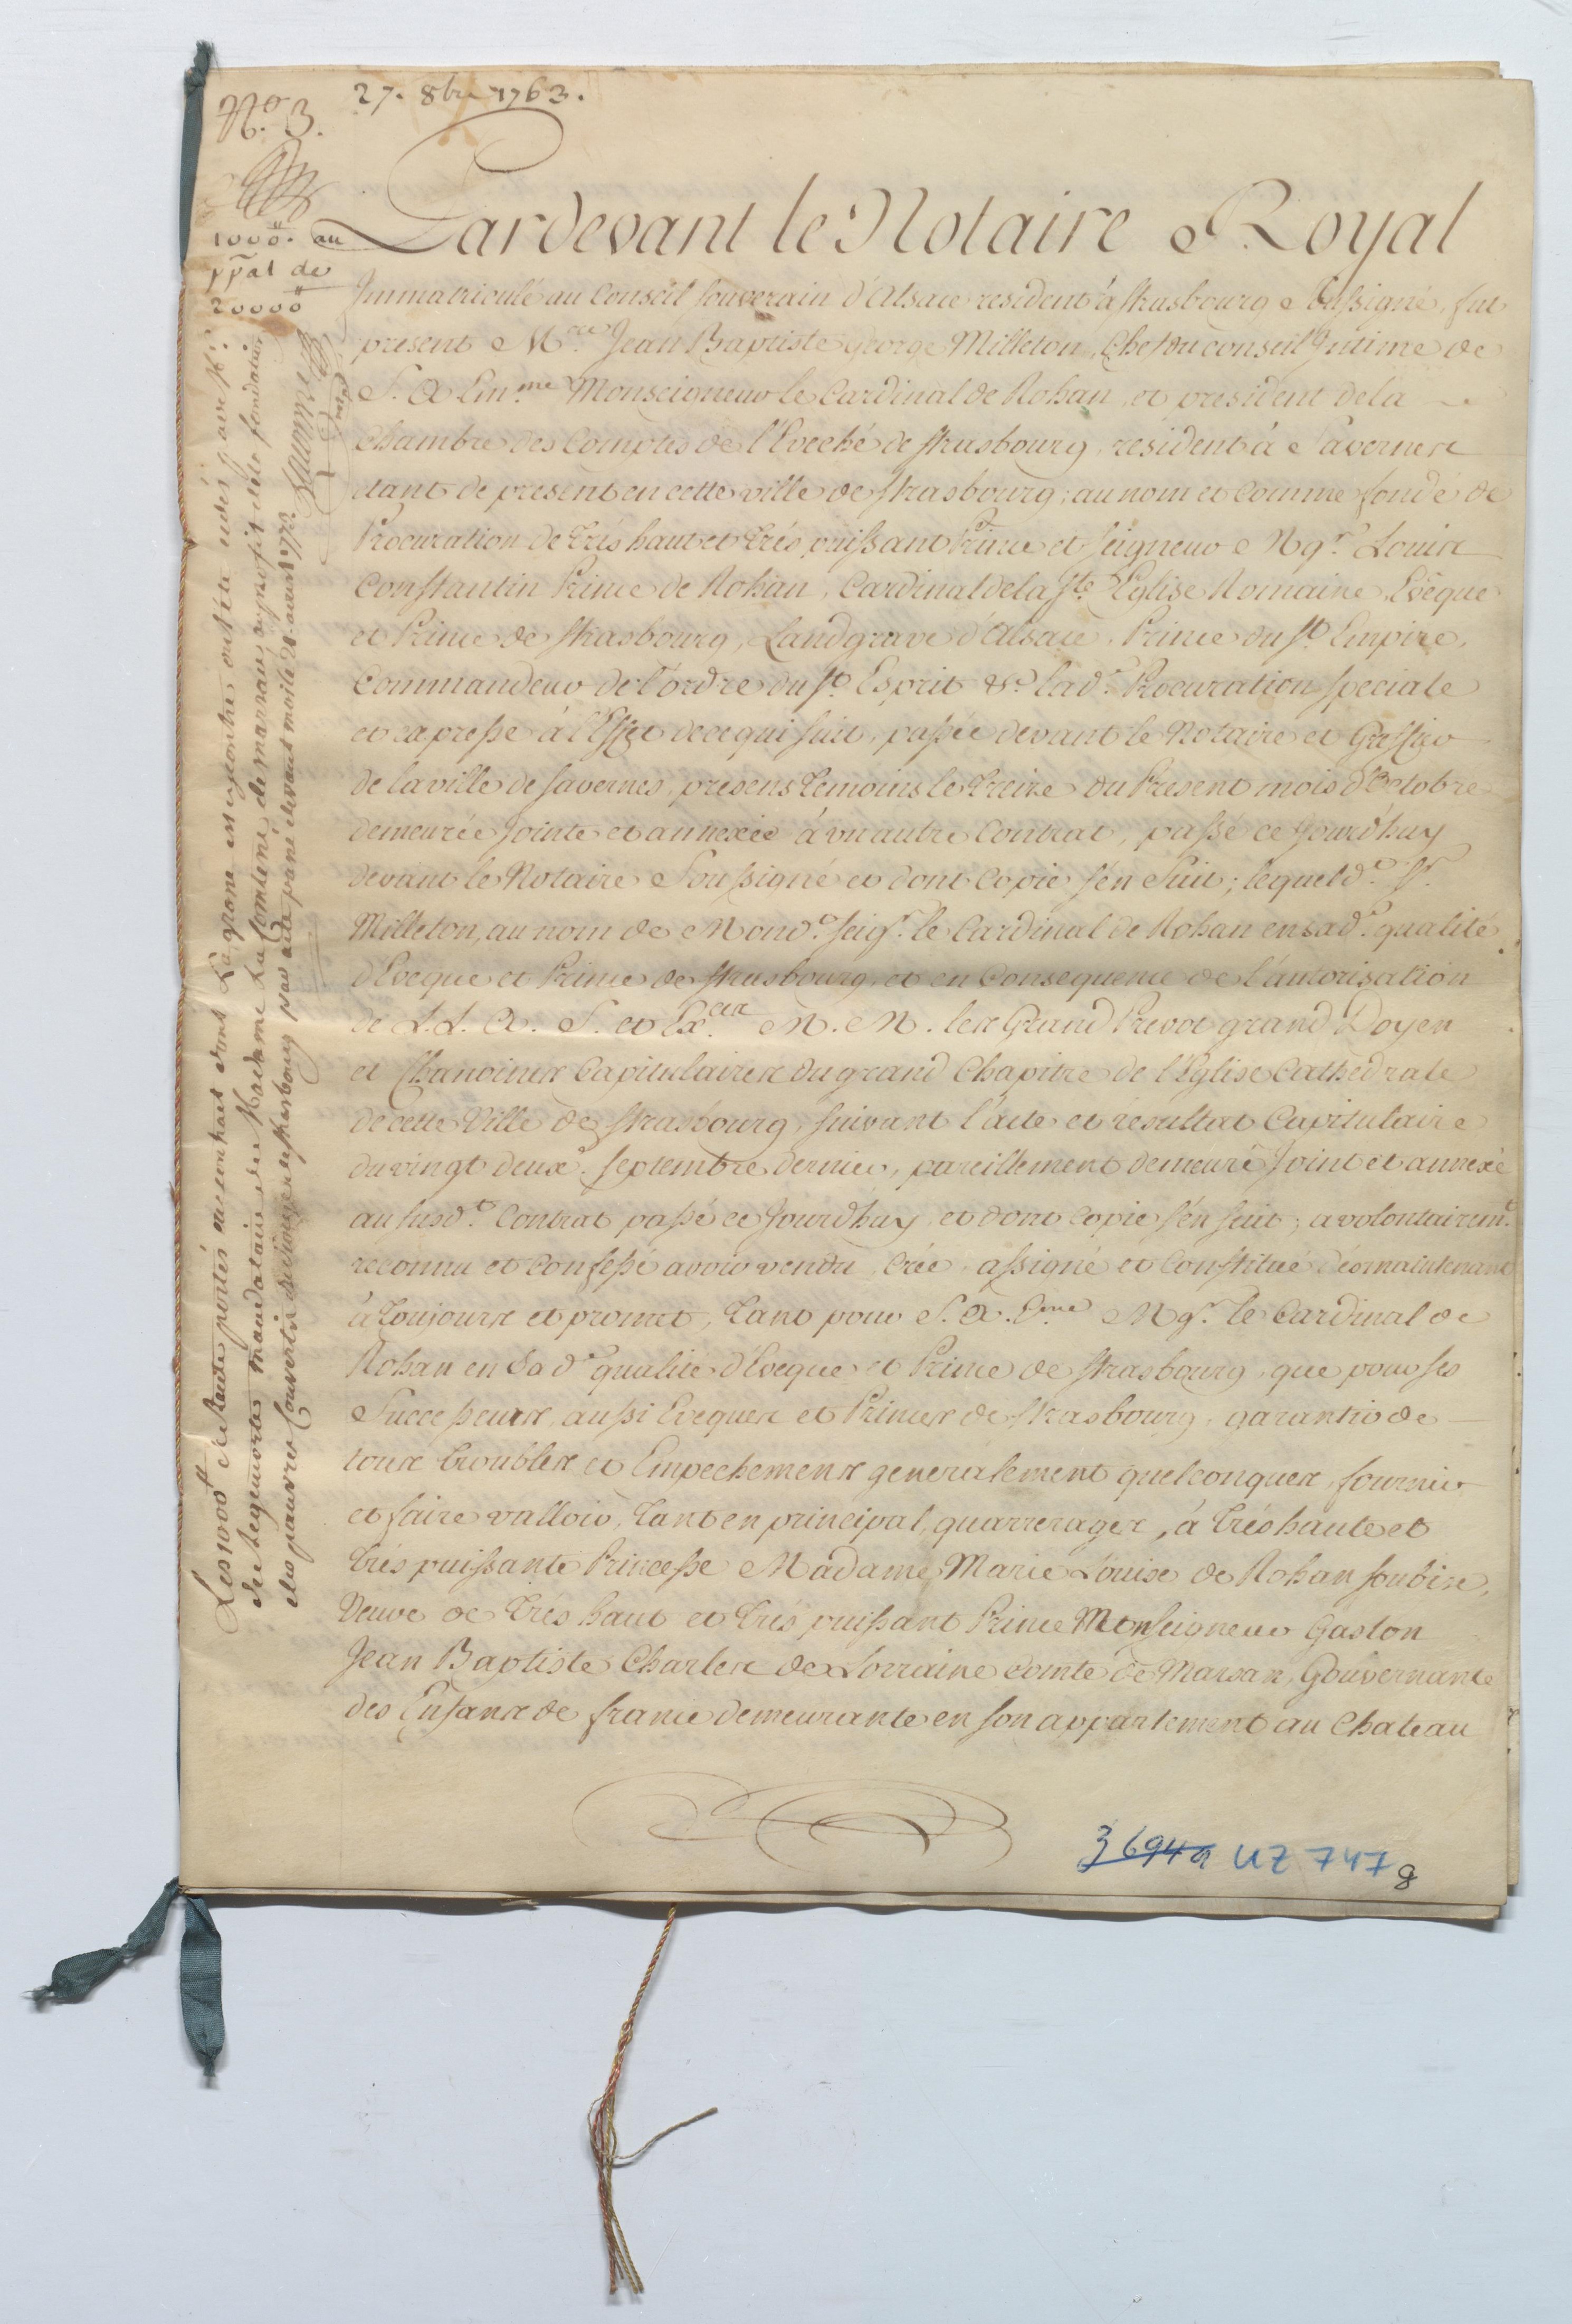 N.o 3.
27. 8bre 1763.
1000.# au
ppal de
20000#
Pardevant le Notaire Royal
Immatriculé au Conseil souverain d'Alsace resident à strasbourg soussigné, fut
present M.re Jean Baptiste George Milleton, Chef du conseil Intime de
S. A Em.me Monseigneur le Cardinal de Rohan, et president de la
Chambre des Comptes de l'Eveché de strasbourg, resident à Savernes
etant de present en cette ville de strasbourg, au nom et comme fondé de
Procuration de trés haut et trés puissant Prince et seigneur Mgr. Louis
Constantin Prince de Rohan, Cardinal de la ste. Eglise Romaine, Evêque
et Prince de strasbourg, Landgrave d'Alsace, Prince du st. Empire,
Commandeur de l'ordre du st. Esprit &c. lad.e Procuration speciale
et expresse à l'Effet de ce qui suit, passée devant le Notaire et Greffier
de la ville de savernes, presens temoins le treize du Present mois d'Octobre
demeurée jointe et annexée à un autre Contrat, passé ce jourd'huy
devant le Notaire Soussigné et dont Copie s'en suit; lequel d.t Sr.
Milleton, au nom de Mond.t seigr. le Cardinal de Rohan en sad.e qualité
d'Eveque et Prince de strasbourg, et en Consequence de l'autorisation
de L. L. A. S. et Ex.ces M. M. les Grand Prevot grand Doyen
et Chanoines Capitulaires du grand Chapitre de l'Eglise Cathedrale
de cette Ville de strasbourg, suivant l'acte et resultat Capitulaire
du vingt deuxe. septembre dernier, pareillement demeuré joint et annexé
au susd.t Contrat passé ce jourd'huy, et dont copie s'en suit, a volontairem.t
reconnu et confessé avoir vendu, Créé, assigné et Constitué dés maintenant
à toujours et promet, tant pour S. A. E.me Mgr. le Cardinal de
Rohan en Sad.e qualité d'Eveque et Prince de strasbourg, que pour ses
Successeurs, aussi Eveques et Princes de strasbourg, garantir de
tous troubles et Empechemens generalement quelconques, fournir
et faire valloir, tant en principal, qu'arrerages, à trés haute et
trés puissante Princesse Madame Marie Louise de Rohan soubise,
Veuve de trés haut et trés puissant Prince Monseigneur Gaston
Jean Baptiste Charles de Lorraine Comte de Marsan, Gouvernante
des Enfans de france demeurante en son appartement au Chateau
Les 1000# de Rente portés au contrat dont La grosse est ci contre ont été cedés
de Requêtes mandataire de Madame La Comtesse de marsan au profit de la fondation
des pauvres Convertis du diocese de strasbourg par acte passé devant moi le 24. aoust 1773.
3694a UZ 747
8